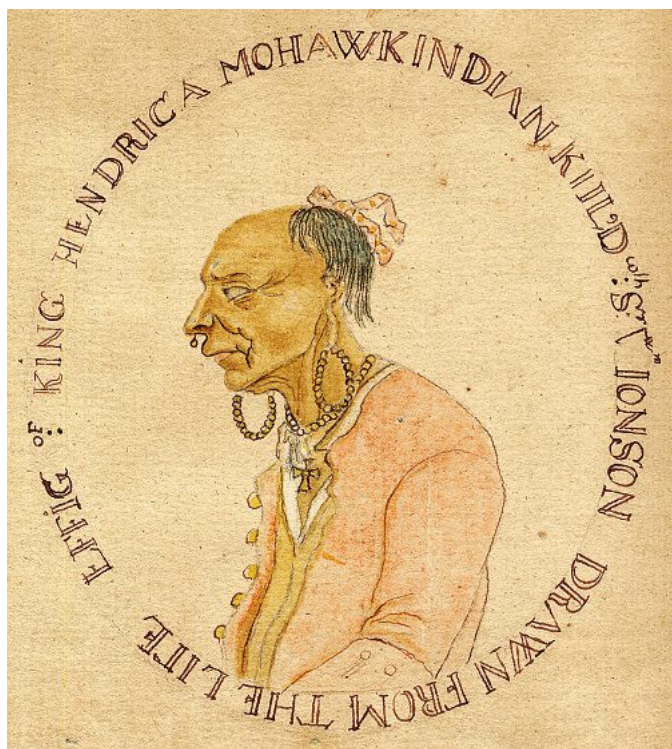 EFFIG OF: KING HENDRICA MOHAWK INDIAN KIIL'D WITH S: Wm IONSON DRAWN FROM THE LIFE